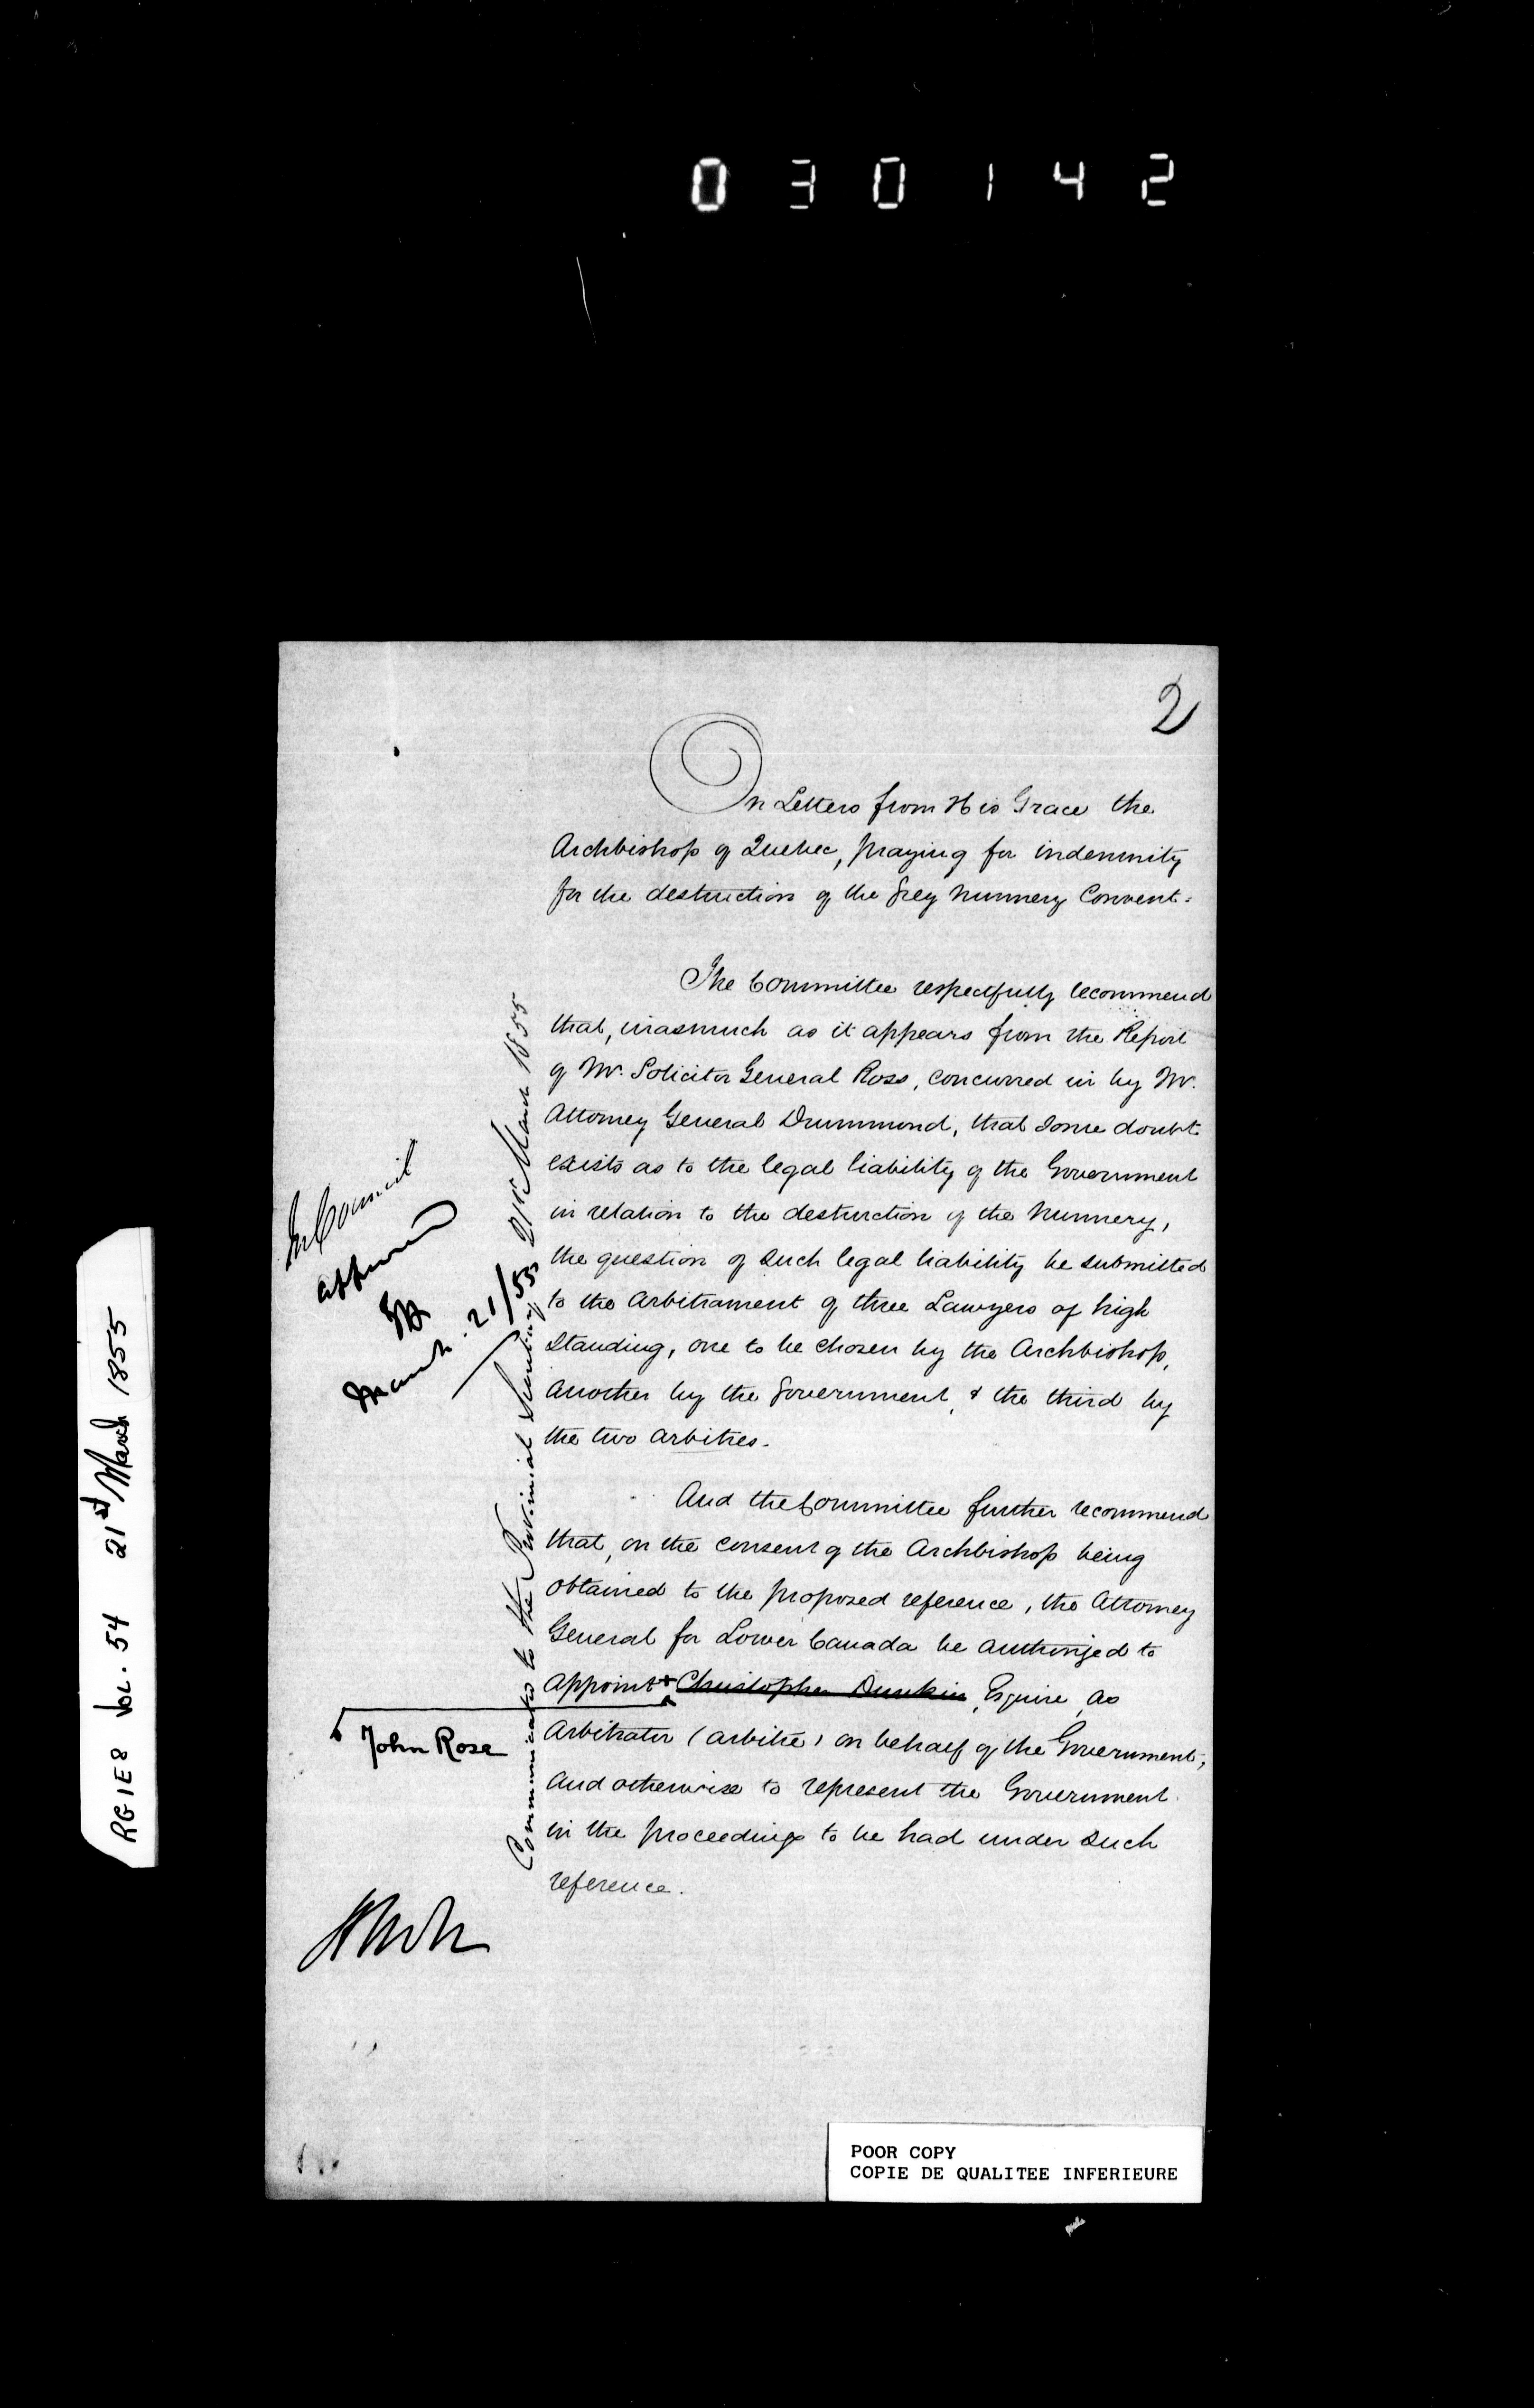 030142
2
On Letters from His Grace the
Archbishop of Quebec, praying for indemnity
for the destruction of the Grey Nunnery Convent.
The Committee respectfully recommend
that, inasmuch as it appears from the Report
of Mr. Solicitor General Ross, concurred in by Mr.
Attorney General Drummond, that some doubt
exists as to the legal liability of the Government
in relation to the destruction of the Nunnery,
the question of such legal liability be submitted
to the arbitrament of three Lawyers of high
standing, one to be chosen by the Archbishop,
another by the Government, & the third by
the two arbitres.
And the Committee further recommend
that, on the consent of the Archbishop being
obtained to the proposed reference, the Attorney
General for Lower Canada be authorized to
appoint + Christopher Dunkin, Esquire, as
Arbitrator (arbitre) on behalf of the Government,
and otherwise to represent the Government
in the proceedings to be had under such
reference.
John Rose
In Council
approved
March 21/55
Communicated to the Provincial Secretary 21st March 1855
RG1E8 Vol. 54 21st March 1855
POOR COPY
COPIE DE QUALITEE INFERIEURE